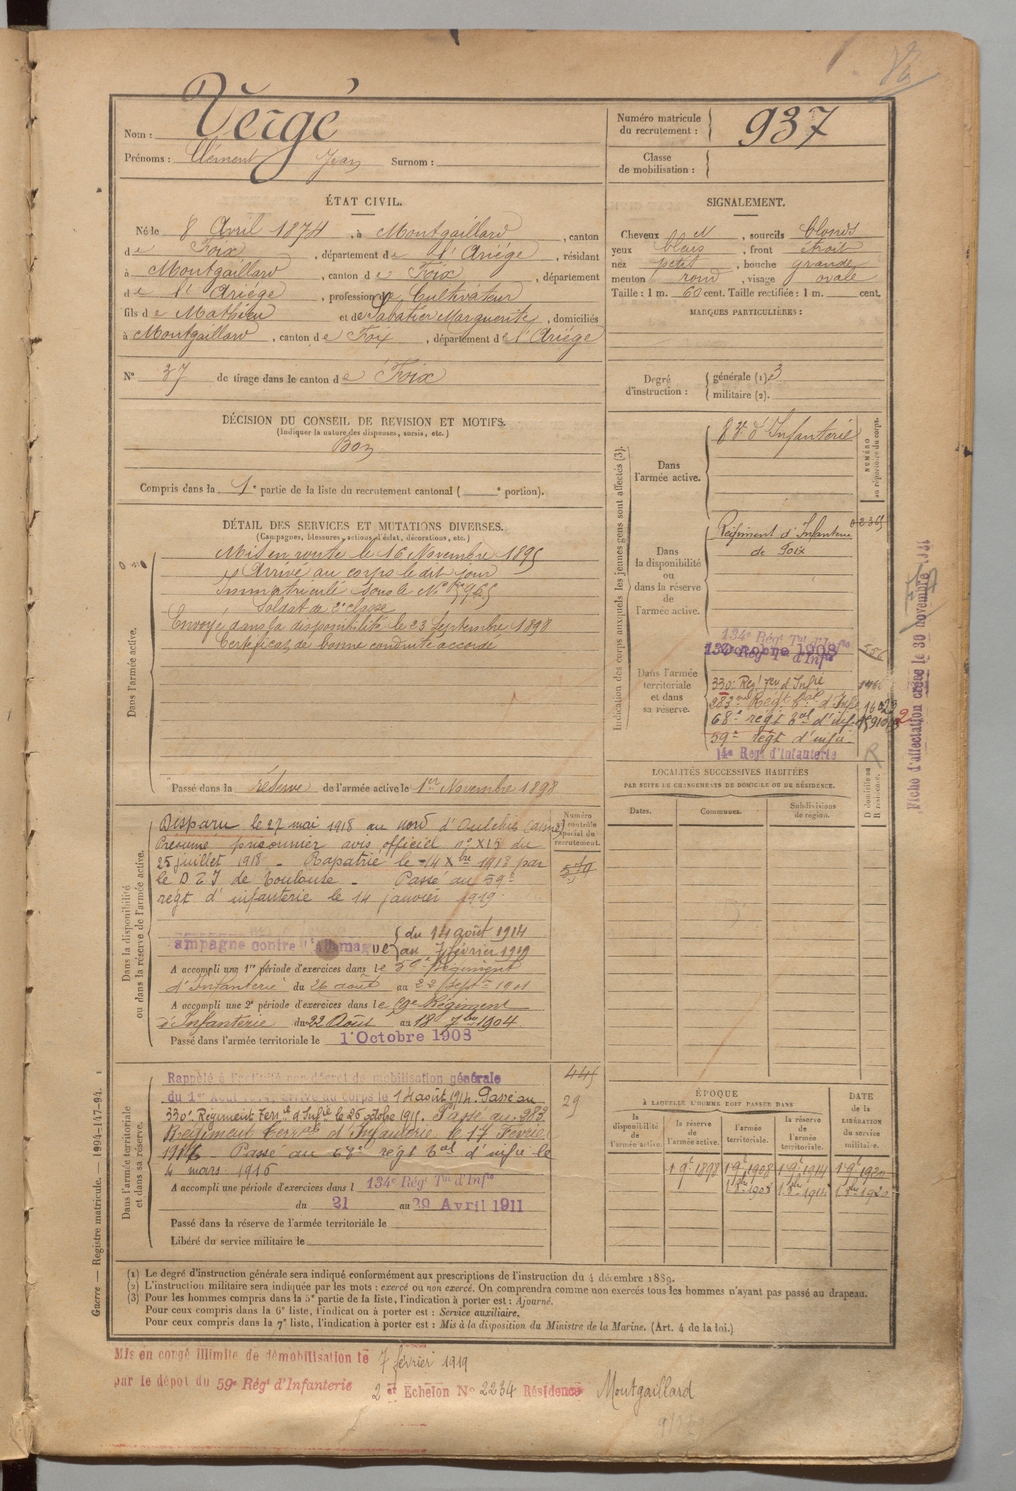 Nom : Vergé
Prénoms : Clément Jean Surnom :
Numéro matricule du recrutement : 937
Classe de mobilisation :
ÉTAT CIVIL.
Né le 8 Avril 1874, à Montgaillard, canton
de Foix, département de l'Ariége, résidant
à Montgaillard, canton de Foix, département
de l'Ariége, profession de Cultivateur
fils de Mathieu et de Sabatier Marguerite, domiciliés
à Montgaillard, canton de Foix, département de l'Ariége
N° 37 de tirage dans le canton de Foix
SIGNALEMENT.
Cheveux N, sourcils blonds
yeux bleus, front étroit
nez petit, bouche grande
menton rond, visage ovale
Taille : 1 m. 60 cent. Taille rectifiée : 1 m. cent.
MARQUES PARTICULIÈRES :
Degré d'instruction : générale (1) 3
militaire (2).
DÉCISION DU CONSEIL DE REVISION ET MOTIFS.
(Indiquer la nature des dispenses, sursis, etc.)
Bon
Compris dans la 1e partie de la liste du recrutement cantonal ( e portion).
DÉTAIL DES SERVICES ET MUTATIONS DIVERSES.
(Campagnes, blessures, actions d'éclat, décorations, etc.)
Dans l'armée active.
Mis en route le 16 Novembre 1895
Arrivé au corps le dit jour
Immatriculé sous le N°
Soldat de 2e classe
Envoyé dans la disponibilité le 23 Septembre 1898
Certificat de bonne conduite accordé
Passé dans la réserve de l'armée active le 1er Novembre 1898
Indication des corps auxquels les jeunes gens sont affectés (3).
NUMÉRO au répertoire du corps.
Dans l'armée active.
d'Infanterie
Dans la disponibilité ou dans la réserve de l'armée active.
Régiment d'Infanterie
de Foix
Dans l'armée territoriale et dans sa réserve.
134e Rég Ter d'Infie
1er octobre 1908
330e Regt Ter d'Infie
283e Regt Eal d'Infie
68e regt Eal d'infie
59e regt d'infie
14e Regt d'Infanterie
Fiche d'affectation créée le 30 novembre
Dans la disponibilité ou dans la réserve de l'armée active.
Disparu le 27 mai 1918 au nord d'Oulches (aisne)
Présumé prisonnier avis officiel n° X15 du
25 juillet 1918 - Rapatrié le 14 Xbre 1918 par
le D T I de Toulouse - Passé au 59e
regt d'infanterie le 14 janvier 1919
Numéro au contrôle spécial du recrutement.
ampagne contre l'Allemagne du 14 août 1914
au 7 février 1919
A accompli une 1re période d'exercices dans le 59e Régiment
d'Infanterie du 26 août au 22 sept 1901
A accompli une 2e période d'exercices dans le 59e Régiment
d'Infanterie du 22 Août au 18 7bre 1904
Passé dans l'armée territoriale le 1 Octobre 1908
LOCALITÉS SUCCESSIVES HABITÉES
PAR SUITE DE CHANGEMENTS DE DOMICILE OU DE RÉSIDENCE.
Dates. Communes. Subdivisions de région. D Domicile ou R Résidence.
R
Dans l'armée territoriale et dans sa réserve.
Rappelé à l'activité par décret de mobilisation générale
du 1er Août Arrivé au corps le 14 août 1914. Passé au
330e Régiment Terral d'Infie le 26 octobre 1915. Passé au 283
Régiment Terral d'Infanterie le 17 Fevrier
1916 - Passé au 68e regt Eal d'infie le
4 mars 1916
445
29
A accompli une période d'exercices dans l 134e Rég Ter d'Infie
du 21 au 29 Avril 1911
Passé dans la réserve de l'armée territoriale le
Libéré du service militaire le
ÉPOQUE
À LAQUELLE L'HOMME DOIT PASSER DANS
la disponibilité de l'armée active. la réserve de l'armée active. l'armée territoriale. la réserve de l'armée territoriale. DATE de la LIBÉRATION du service militaire.
1 9e 1898 1 9e 1908 1 9e 1914 1 9e 1920
Guerre — Registre matricule. — 1994-147-94.
(1) Le degré d'instruction générale sera indiqué conformément aux prescriptions de l'instruction du 4 décembre 1889.
(2) L'instruction militaire sera indiquée par les mots : exercé ou non exercé. On comprendra comme non exercés tous les hommes n'ayant pas passé au drapeau.
(3) Pour les hommes compris dans la 5e partie de la liste, l'indication à porter est : Ajourné.
Pour ceux compris dans la 6e liste, l'indication à porter est : Service auxiliaire.
Pour ceux compris dans la 7e liste, l'indication à porter est : Mis à la disposition du Ministre de la Marine. (Art. 4 de la loi.)
Mis en congé illimité de démobilisation le 7 février 1919
par le dépot du 59e Régt d'Infanterie 2 er Echelon N° 2234 Résidence Montgaillard